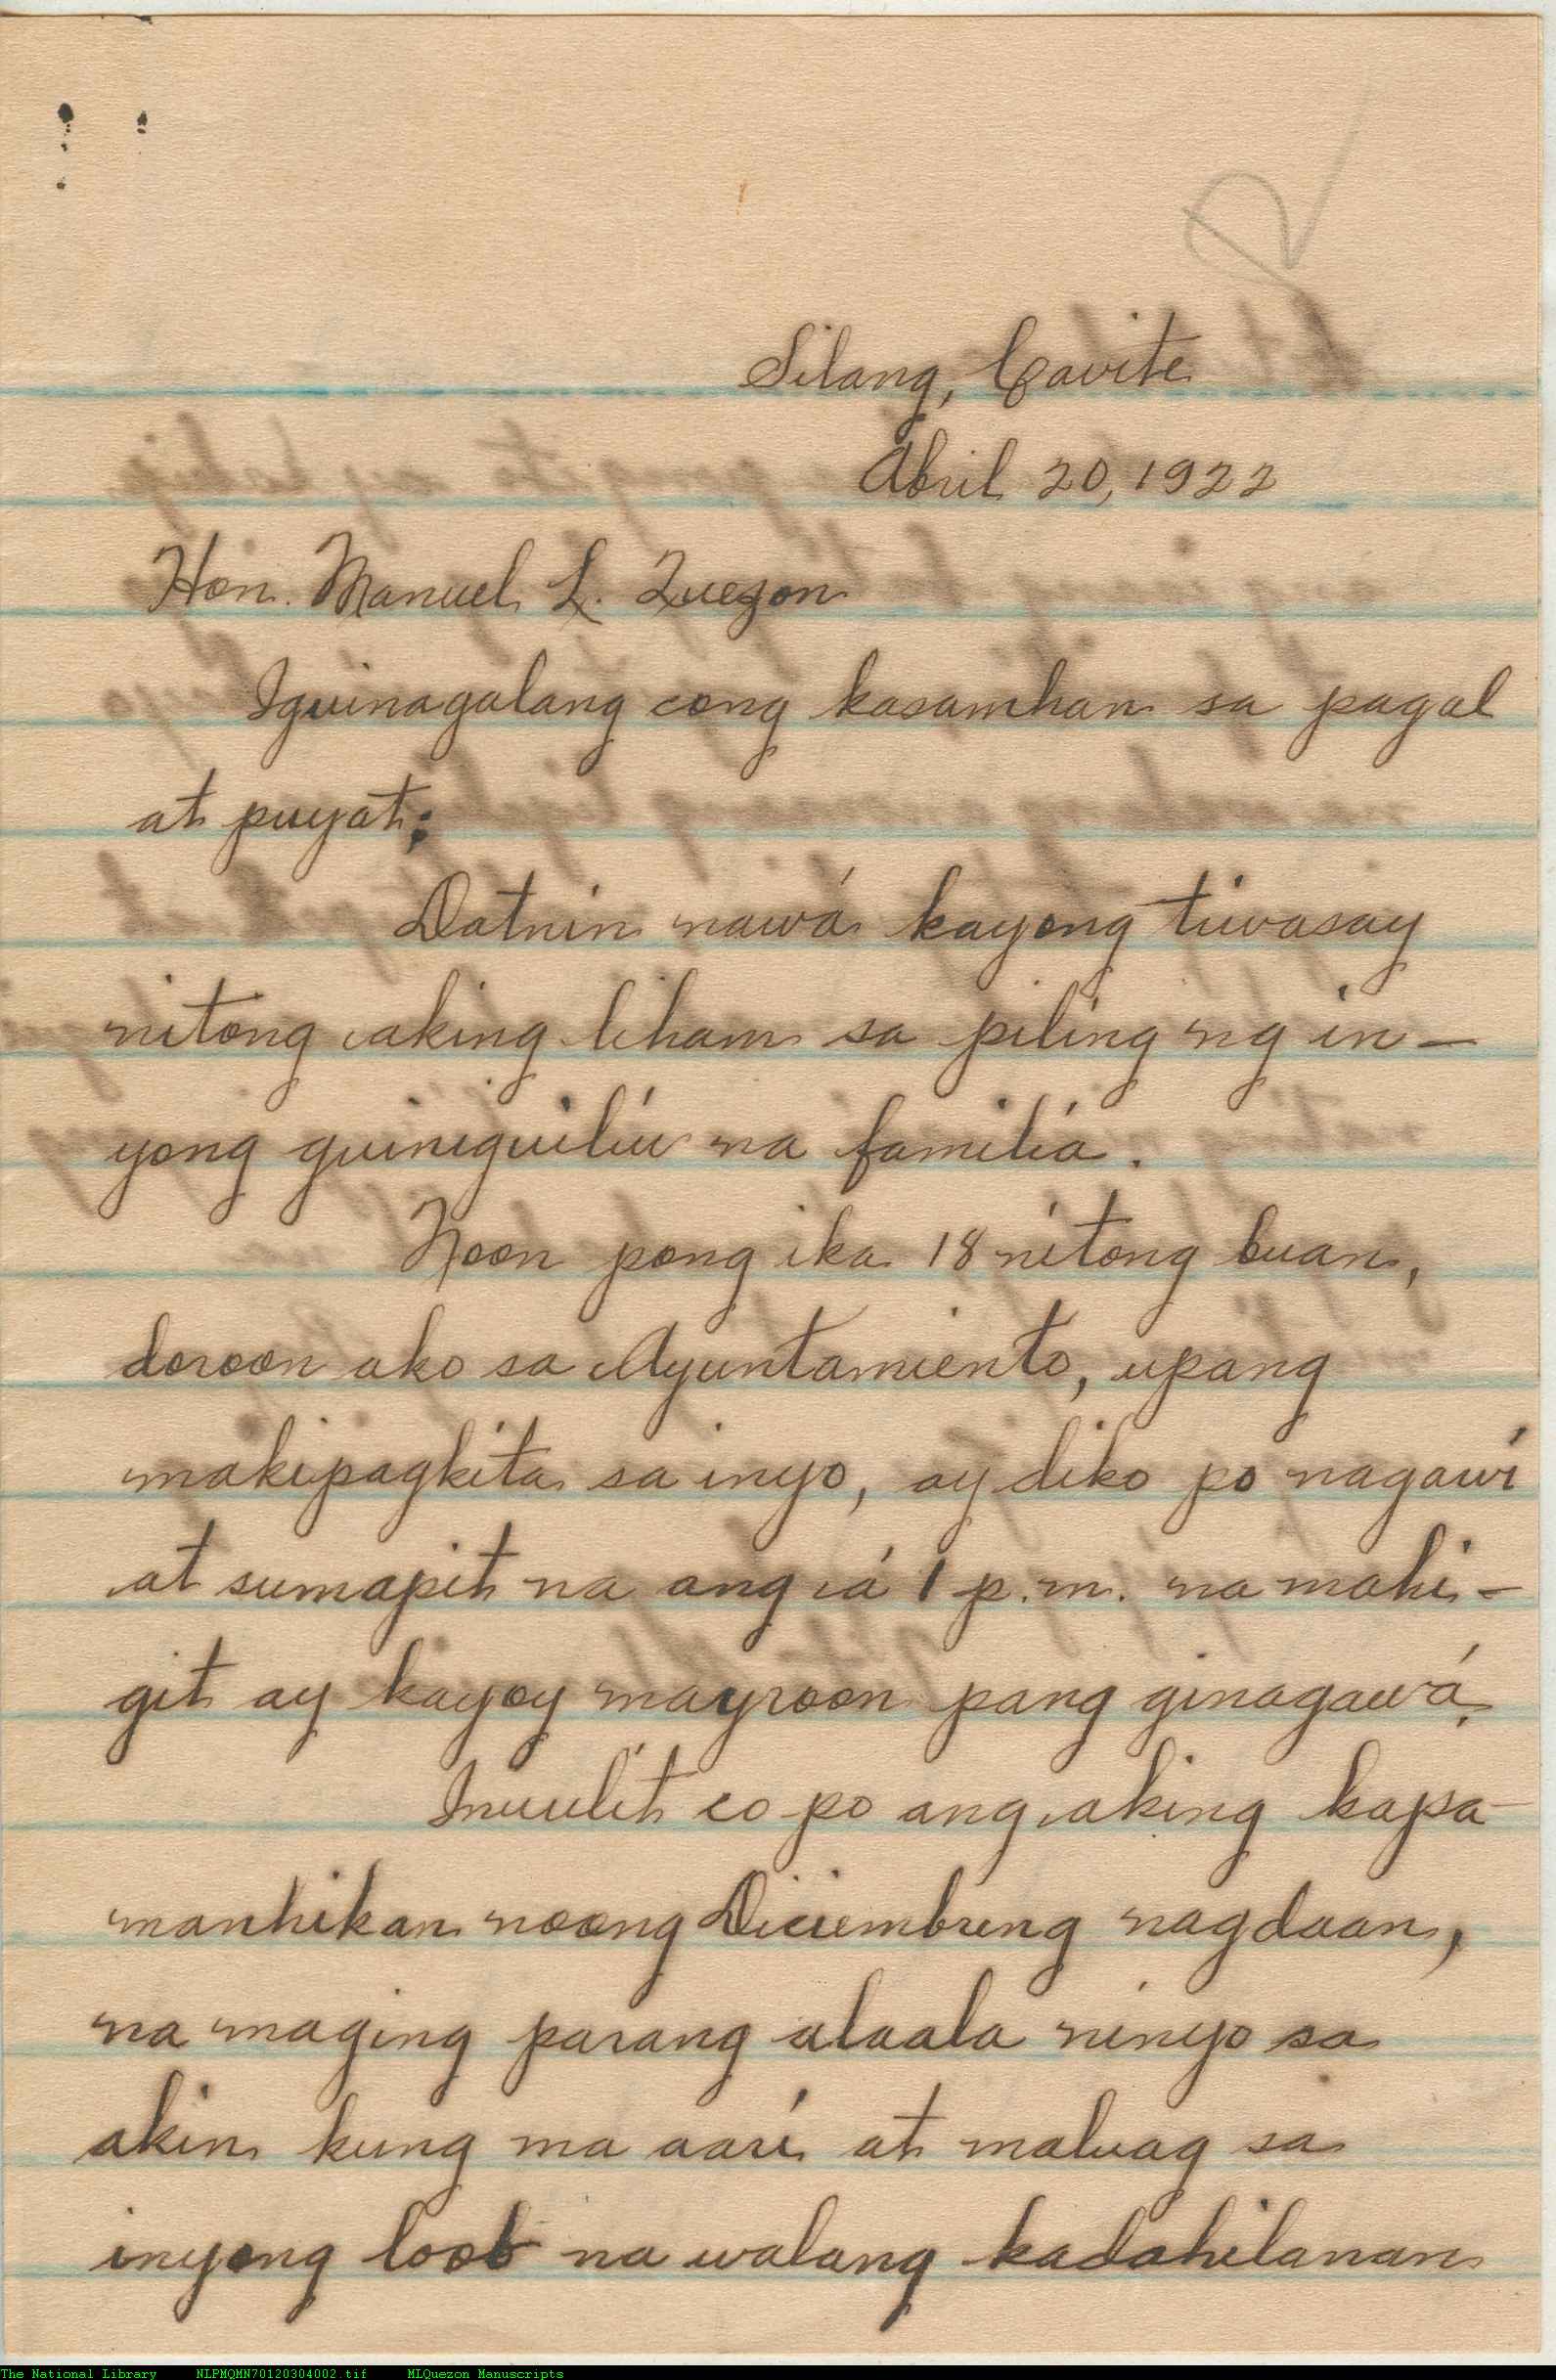 R
Silang, Cavite
Abril 20, 1922
Hon. Manuel L. Quezon
Iguinagalang cong kasamhan sa pagal
at puyat;
Datnin nawá kayong tiwasay
nitong aking liham sa piling ng in-
yong guiniguilíu na familiá.
Noon pong ika 18 nitong buan,
doroon ako sa Ayuntamiento, upang
makipagkita sa inyo, ay diko po nagawí
at sumapit na ang á 1 p.m. na mahi-
git ay kayoy mayroon pang ginagawá.
Inuulit co po ang aking kapa-
manhikan noong Diciembreng nagdaan,
na maging parang alaala ninyo sa
akin kung ma aarí at maluag sa
inyong loob na walang kadahilanan
The National Library NLPMQMN70120304002.tif MLQuezon Manuscripts